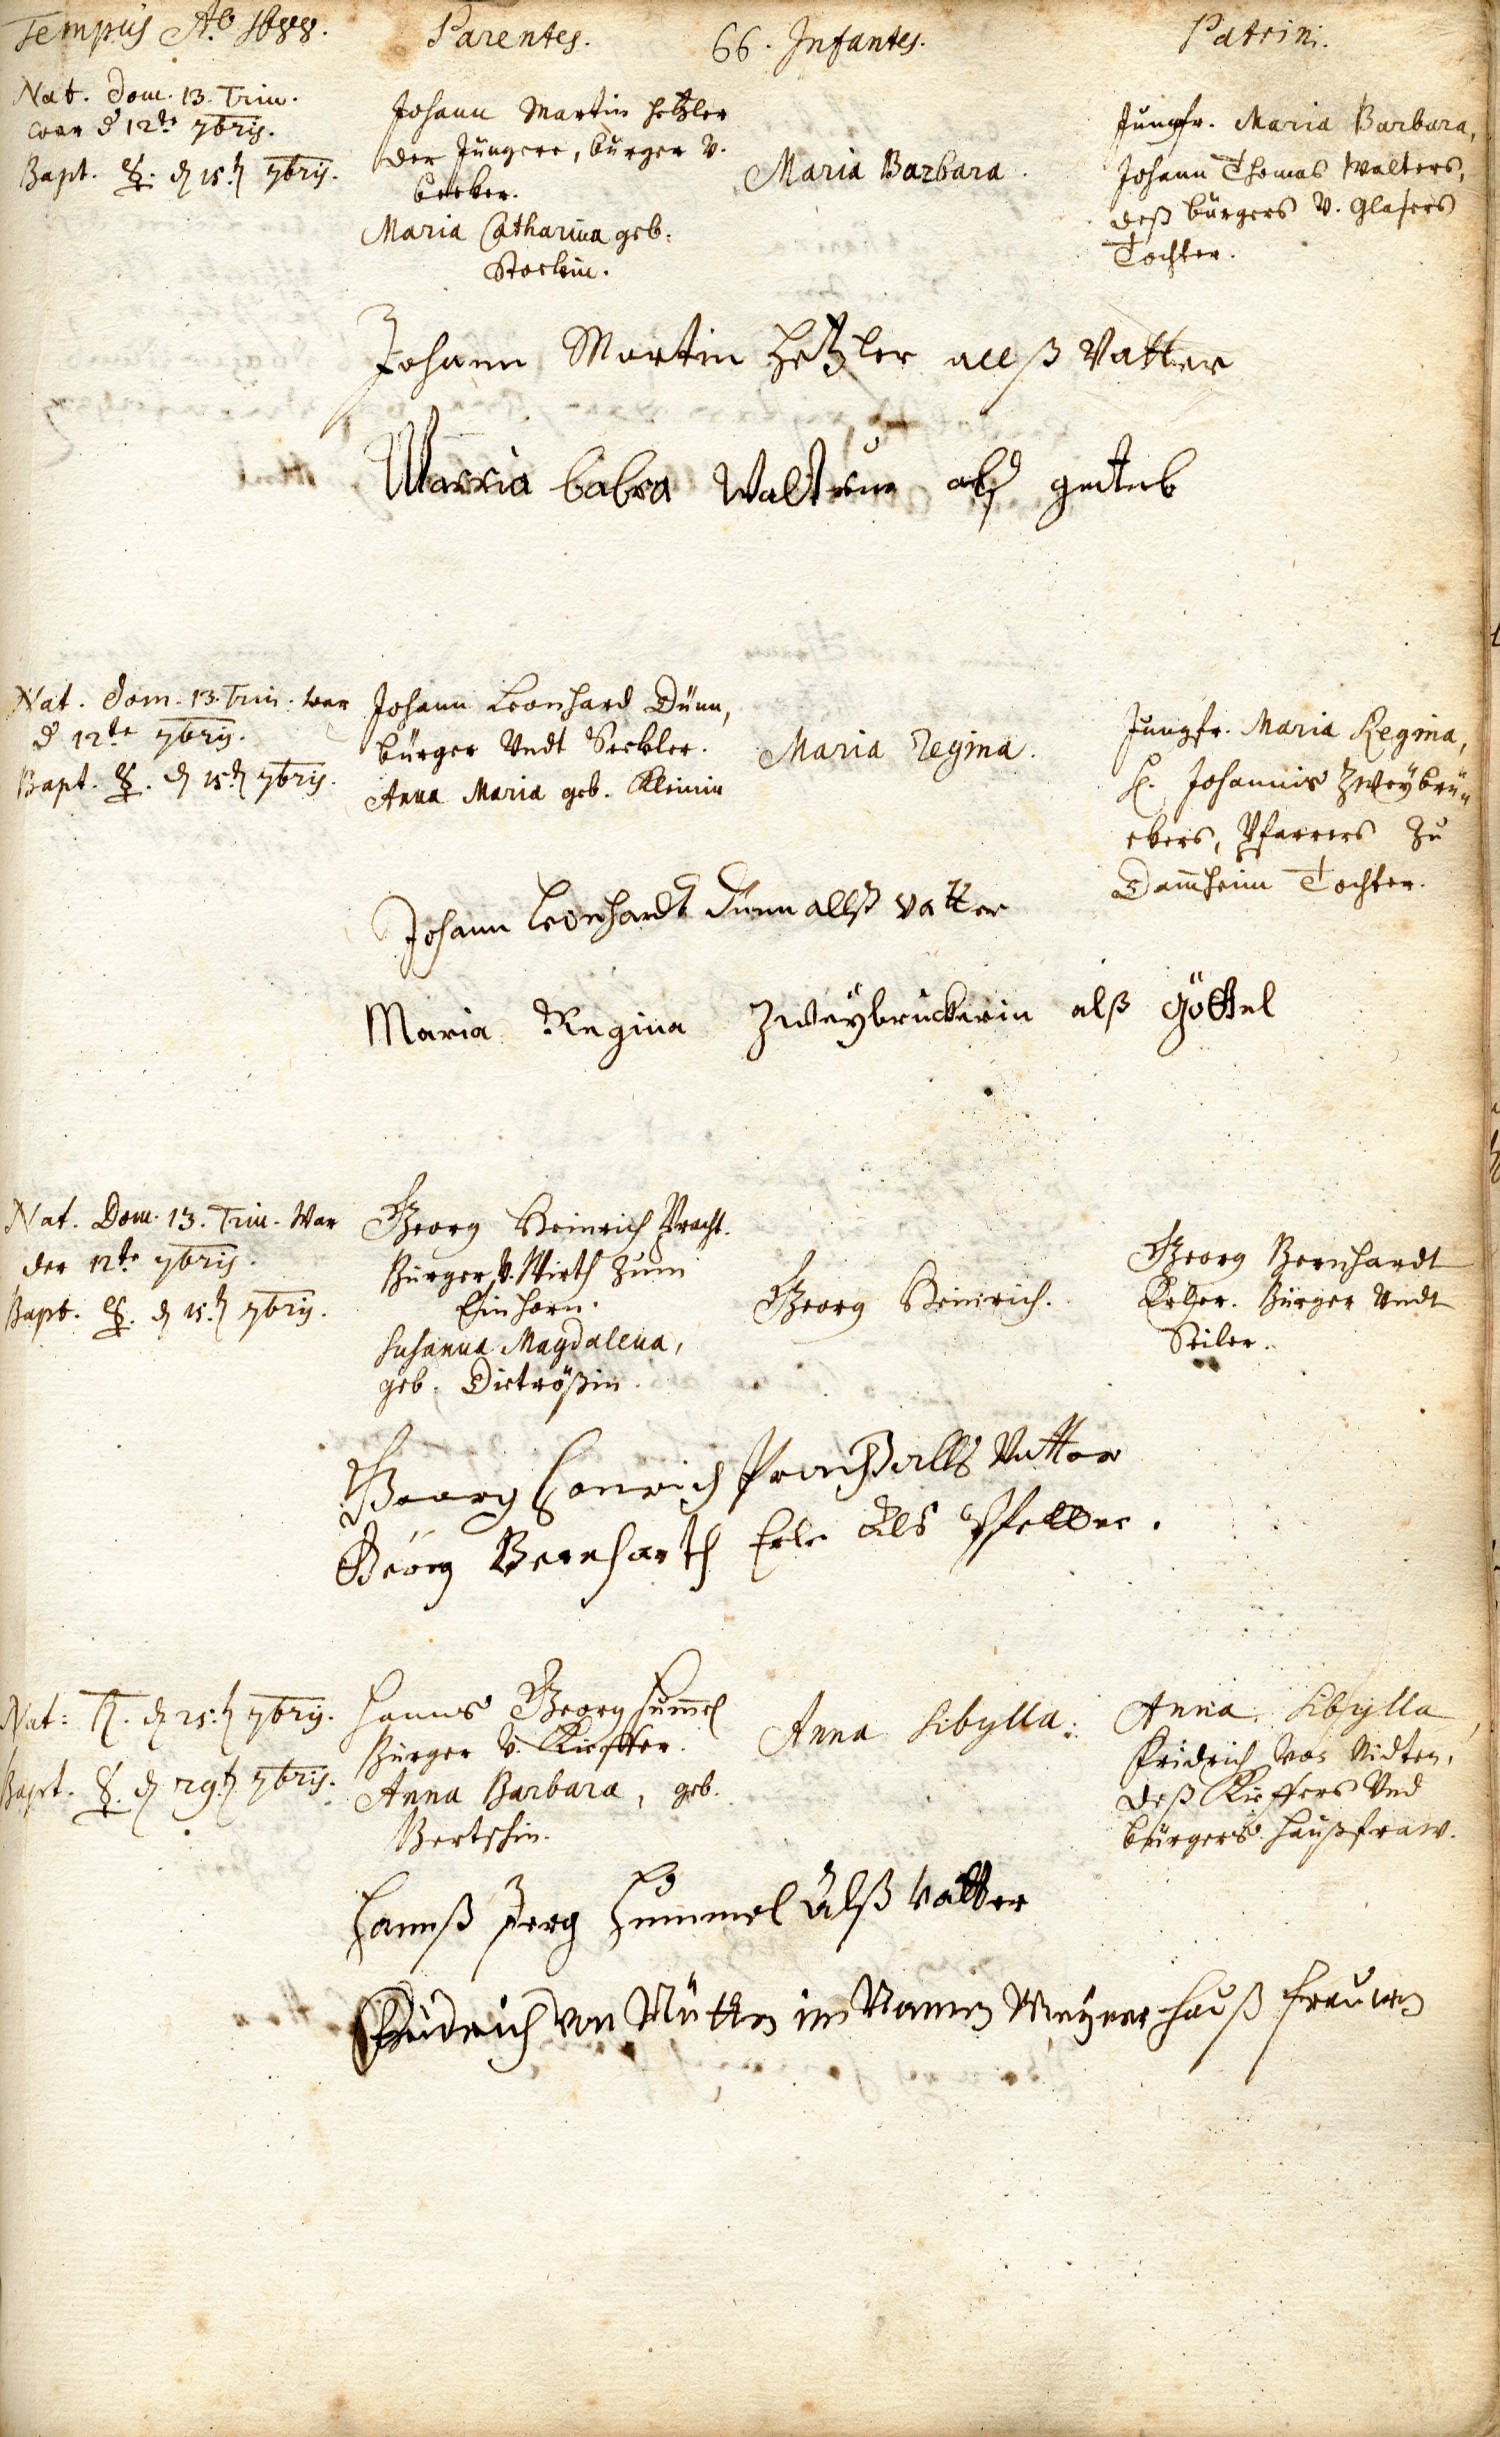 Tempus Ao. 1688.
Parentes.
66. Infantes.
Patrini.
Nat. Dom. 13. Trin.
war d 12te 7bris.
Bapt. ☿. d 15.t 7bris.
Johann Martin Hetzler
der Jüngere, burger v.
becker.
Maria Catharina geb.
Maria Barbara.
Jungfr. Maria Barbara,
Johann Thomas Walters,
deß bürgers v. Glasers
Tochter.
Johann Martin Hetzler allß Vatter
Marria babra Waltrin alß
Nat. Dom. 13. Trin. war
d 12te 7bris.
Bapt. ☿. d 15.t 7bris.
Johann Leonhard Dünn,
bürger Undt Seckler.
Anna Maria geb. Kleinin
Maria Regina.
Jungfr. Maria Regina,
H. Johannis Zweybrü
ckers, Pfarrers Zu
Dam̄heim Tochter.
Johann Leonhardt Dünn allß vatter
Maria Regina Zweÿbrückerin alß Göttel
Nat. Dom. 13. Trin. War
der 12te 7bris.
Bapt. ☿. d 15.t 7bris.
Georg Heinrich Pracht.
Bürger v. Wirth Zum
Einhorn.
Susanna Magdalena,
geb.
Georg Heinrich.
Georg Bernhardt
Bürger Undt
Seiler.
Georg Henrich Pracht alls Vatter
Georg Bernharth Erle Als Pfetter.
Nat: d 25.t 7bris.
Bapt. ☿. d 29.t 7bris.
Hanns Georg Hum̄el
Bürger v. Kieffer.
Anna Barbara, geb.
Bertschin.
Anna Sibylla.
Anna Sibylla,
Fridrich Von Nidten,
deß Kieffers Und
bürgers haußfraw.
Hannß Jerg Hummel Alß vatter
Fridrich von Nütten im Namen Meyner hauß frauwen